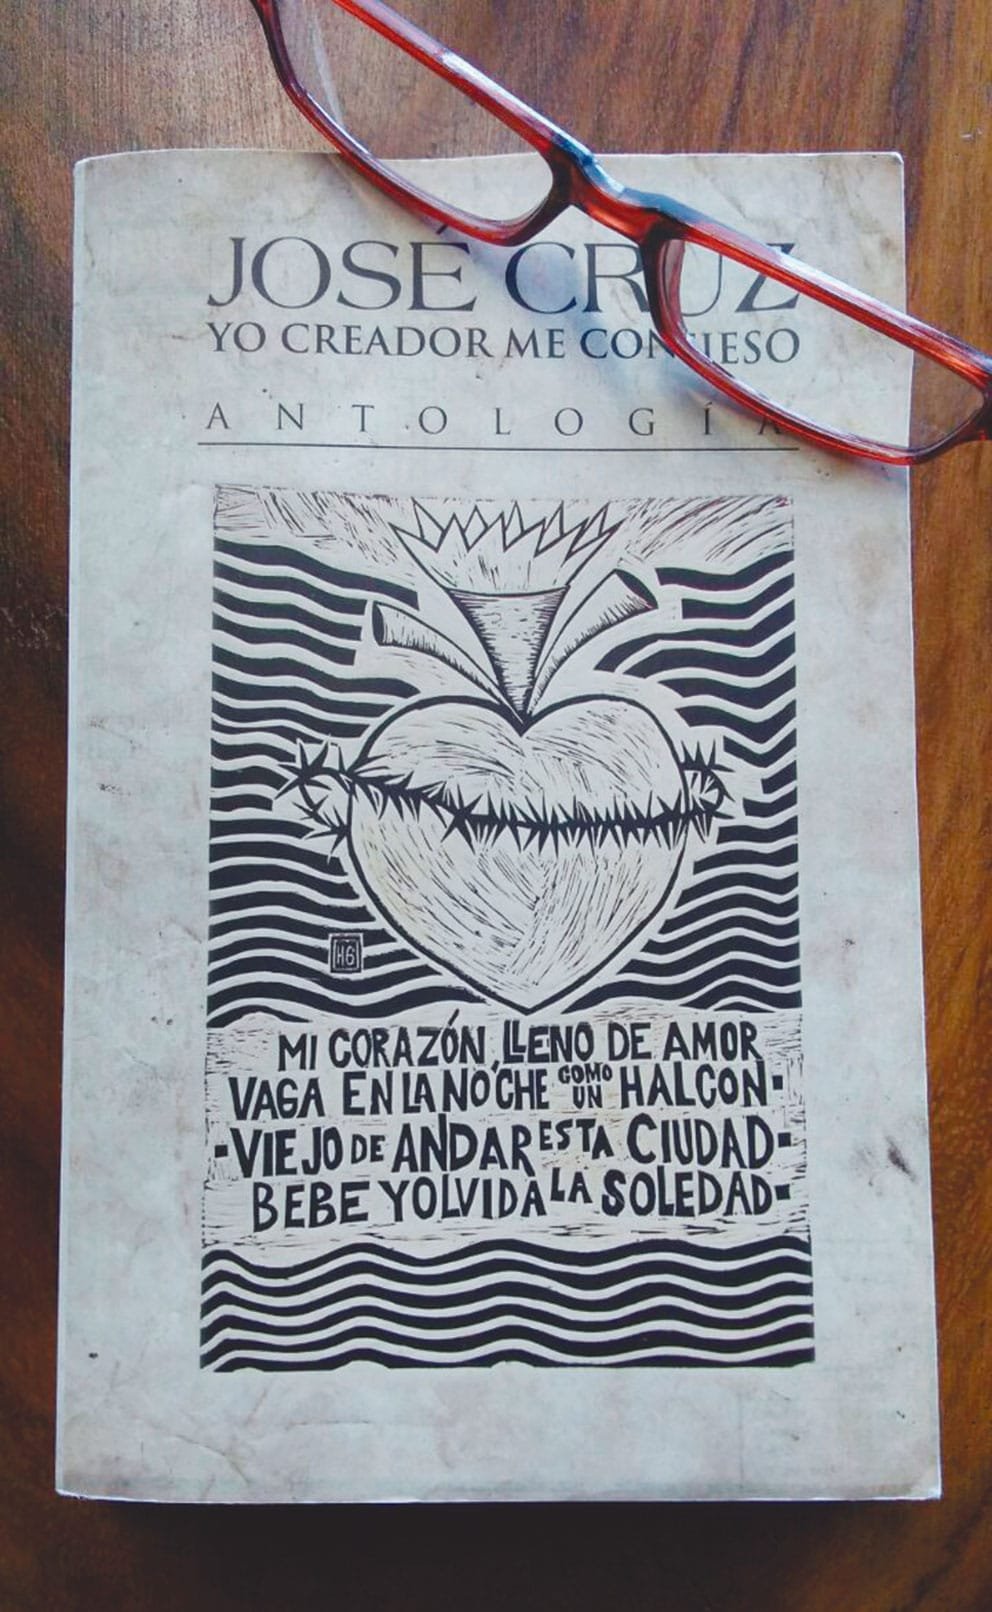 JOSÉ CRUZ
YO CREADOR ME CONFIESO
ANTOLOGÍA
H6
MI CORAZÓN, LLENO DE AMOR
VAGA EN LA NOCHE COMO UN HALCON
VIEJO DE ANDAR ESTA CIUDAD
BEBE Y OLVIDA LA SOLEDAD